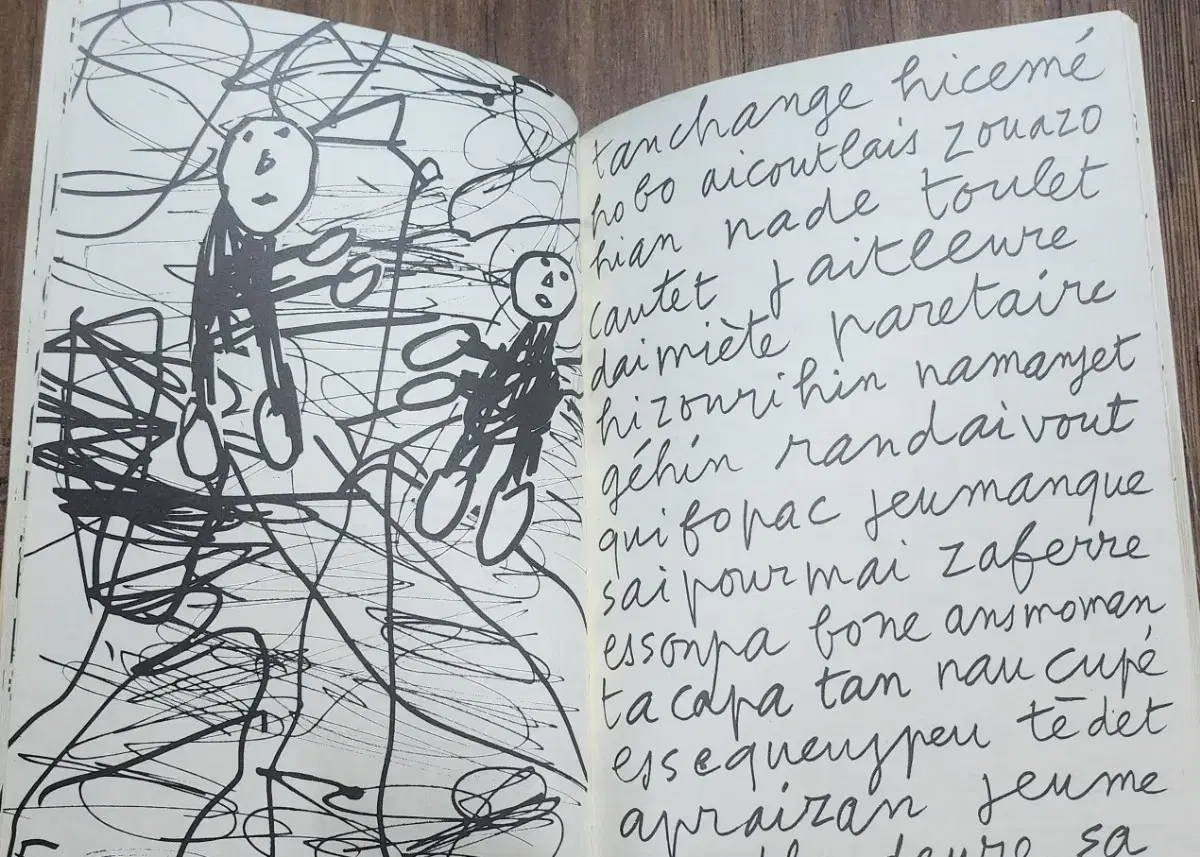 tanchange hicemé
hobo aicoutlais zouazo
hian nade toulet
cautet faitleure
daimiète paretaire
hizourihin namanjet
géhin randaivout
quifopac jeumanque
saipourmai zaferre
essonpa bone ansmoman
ta capa tan nau cupé
essequeujpeu tēdet
apraizan jeume
sa